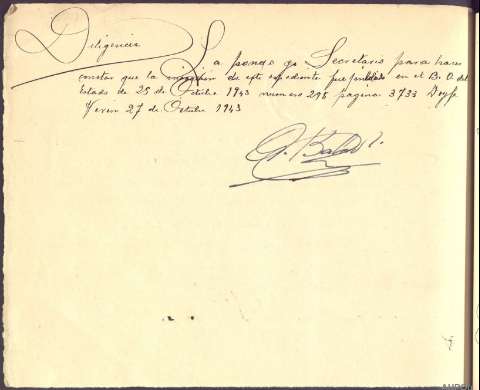 Diligencia La pongo yo Secretario para hacer
constar que la iniciación de este expediente fue publicada en el B. O. del
Estado de 25 de Octubre 1943 numero 298 pagina 3733 Doy fe
Verin 27 de Octubre 1943